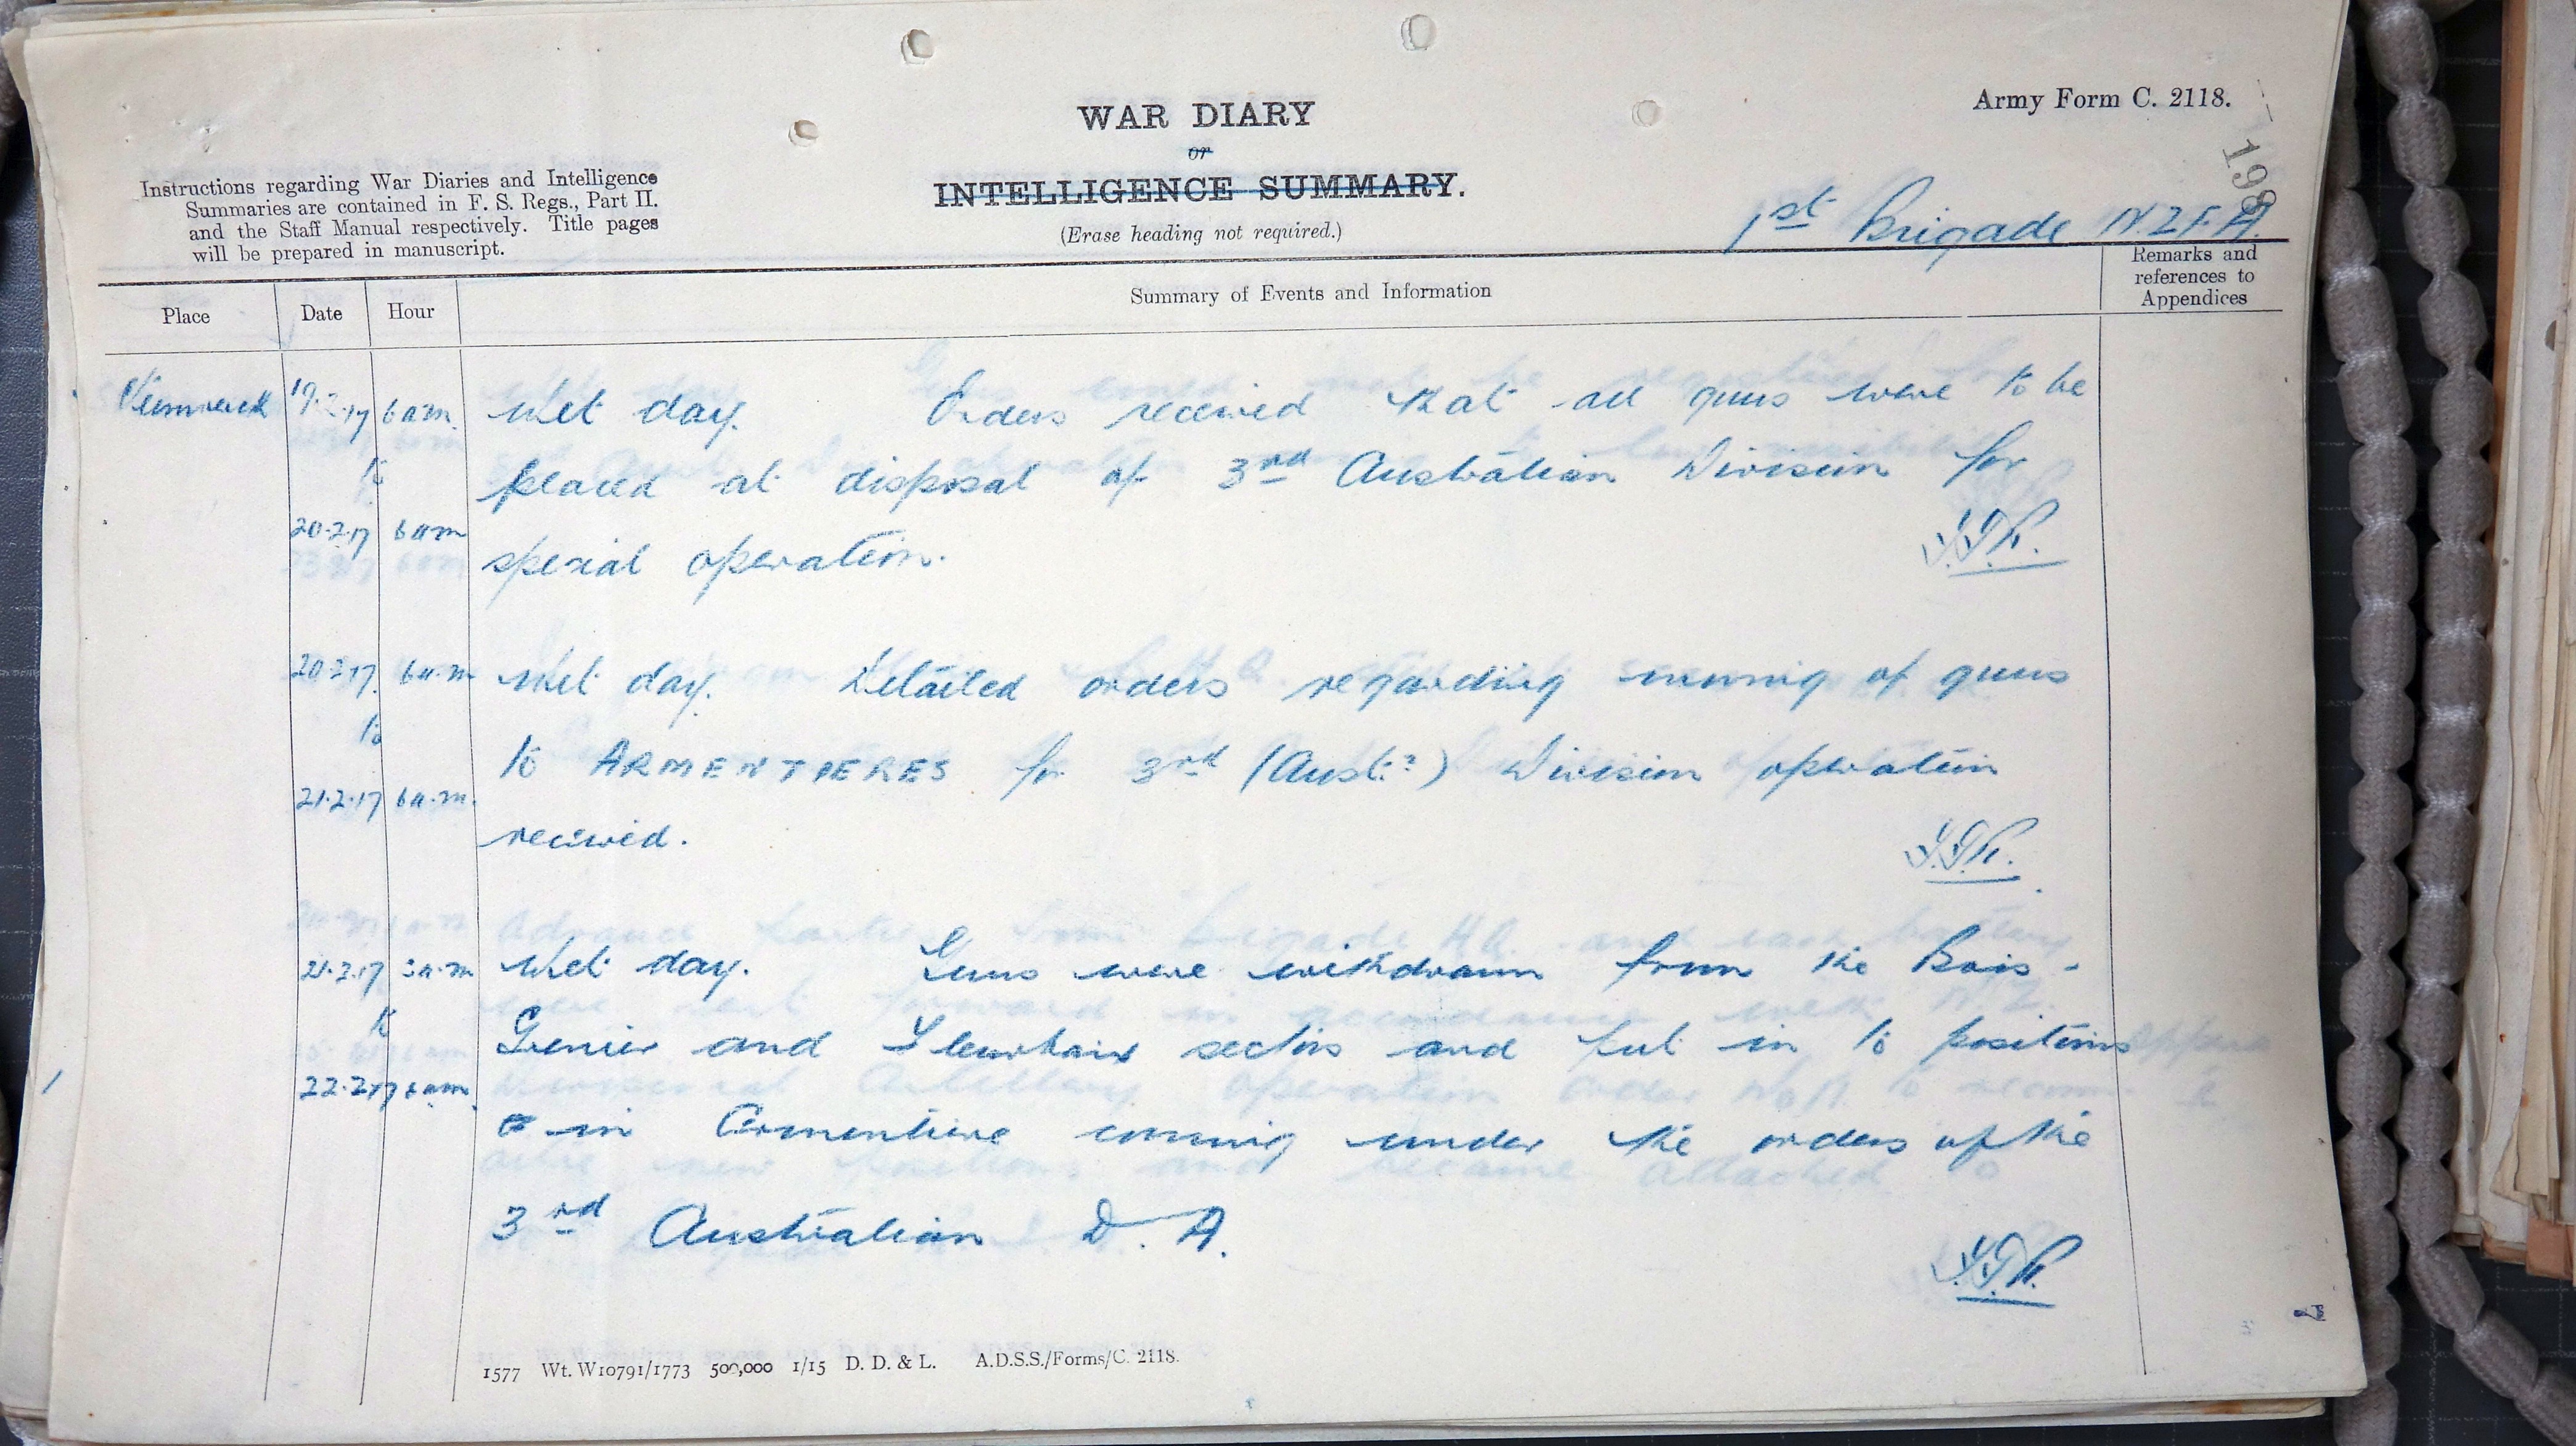 WAR DIARY
or
INTELLIGENCE SUMMARY.
(Erase heading not required.)
Army Form C. 2118.
198
Instructions regarding War Diaries and Intelligence
Summaries are contained in F. S. Regs., Part II.
and the Staff Manual respectively. Title pages
will be prepared in manuscript.
1st Brigade N.Z.F.A.
Place Date Hour Summary of Events and Information Remarks and
references to
Appendices
19.2.17 6 am. Wet day. Orders received that all guns were to be
to placed at disposal of 3rd Australian Division for
20.2.17 6 am special operation.
20.2.17. 6 a.m Wet day. Detailed orders regarding of guns
to
to ARMENTIERES for 3rd (Aust.) Division operation
21.2.17 6 a.m. received.
21.2.17 a.m Wet day. Guns were withdrawn from the Bois-
to Grenier and Fleurbaix sectors and put in to positions
22.2.17 6 am. in Armentiere coming under the orders of the
3rd Australian D. A.
1577 Wt. W10791/1773 500,000 1/15 D. D. & L. A.D.S.S./Forms/C. 2118.